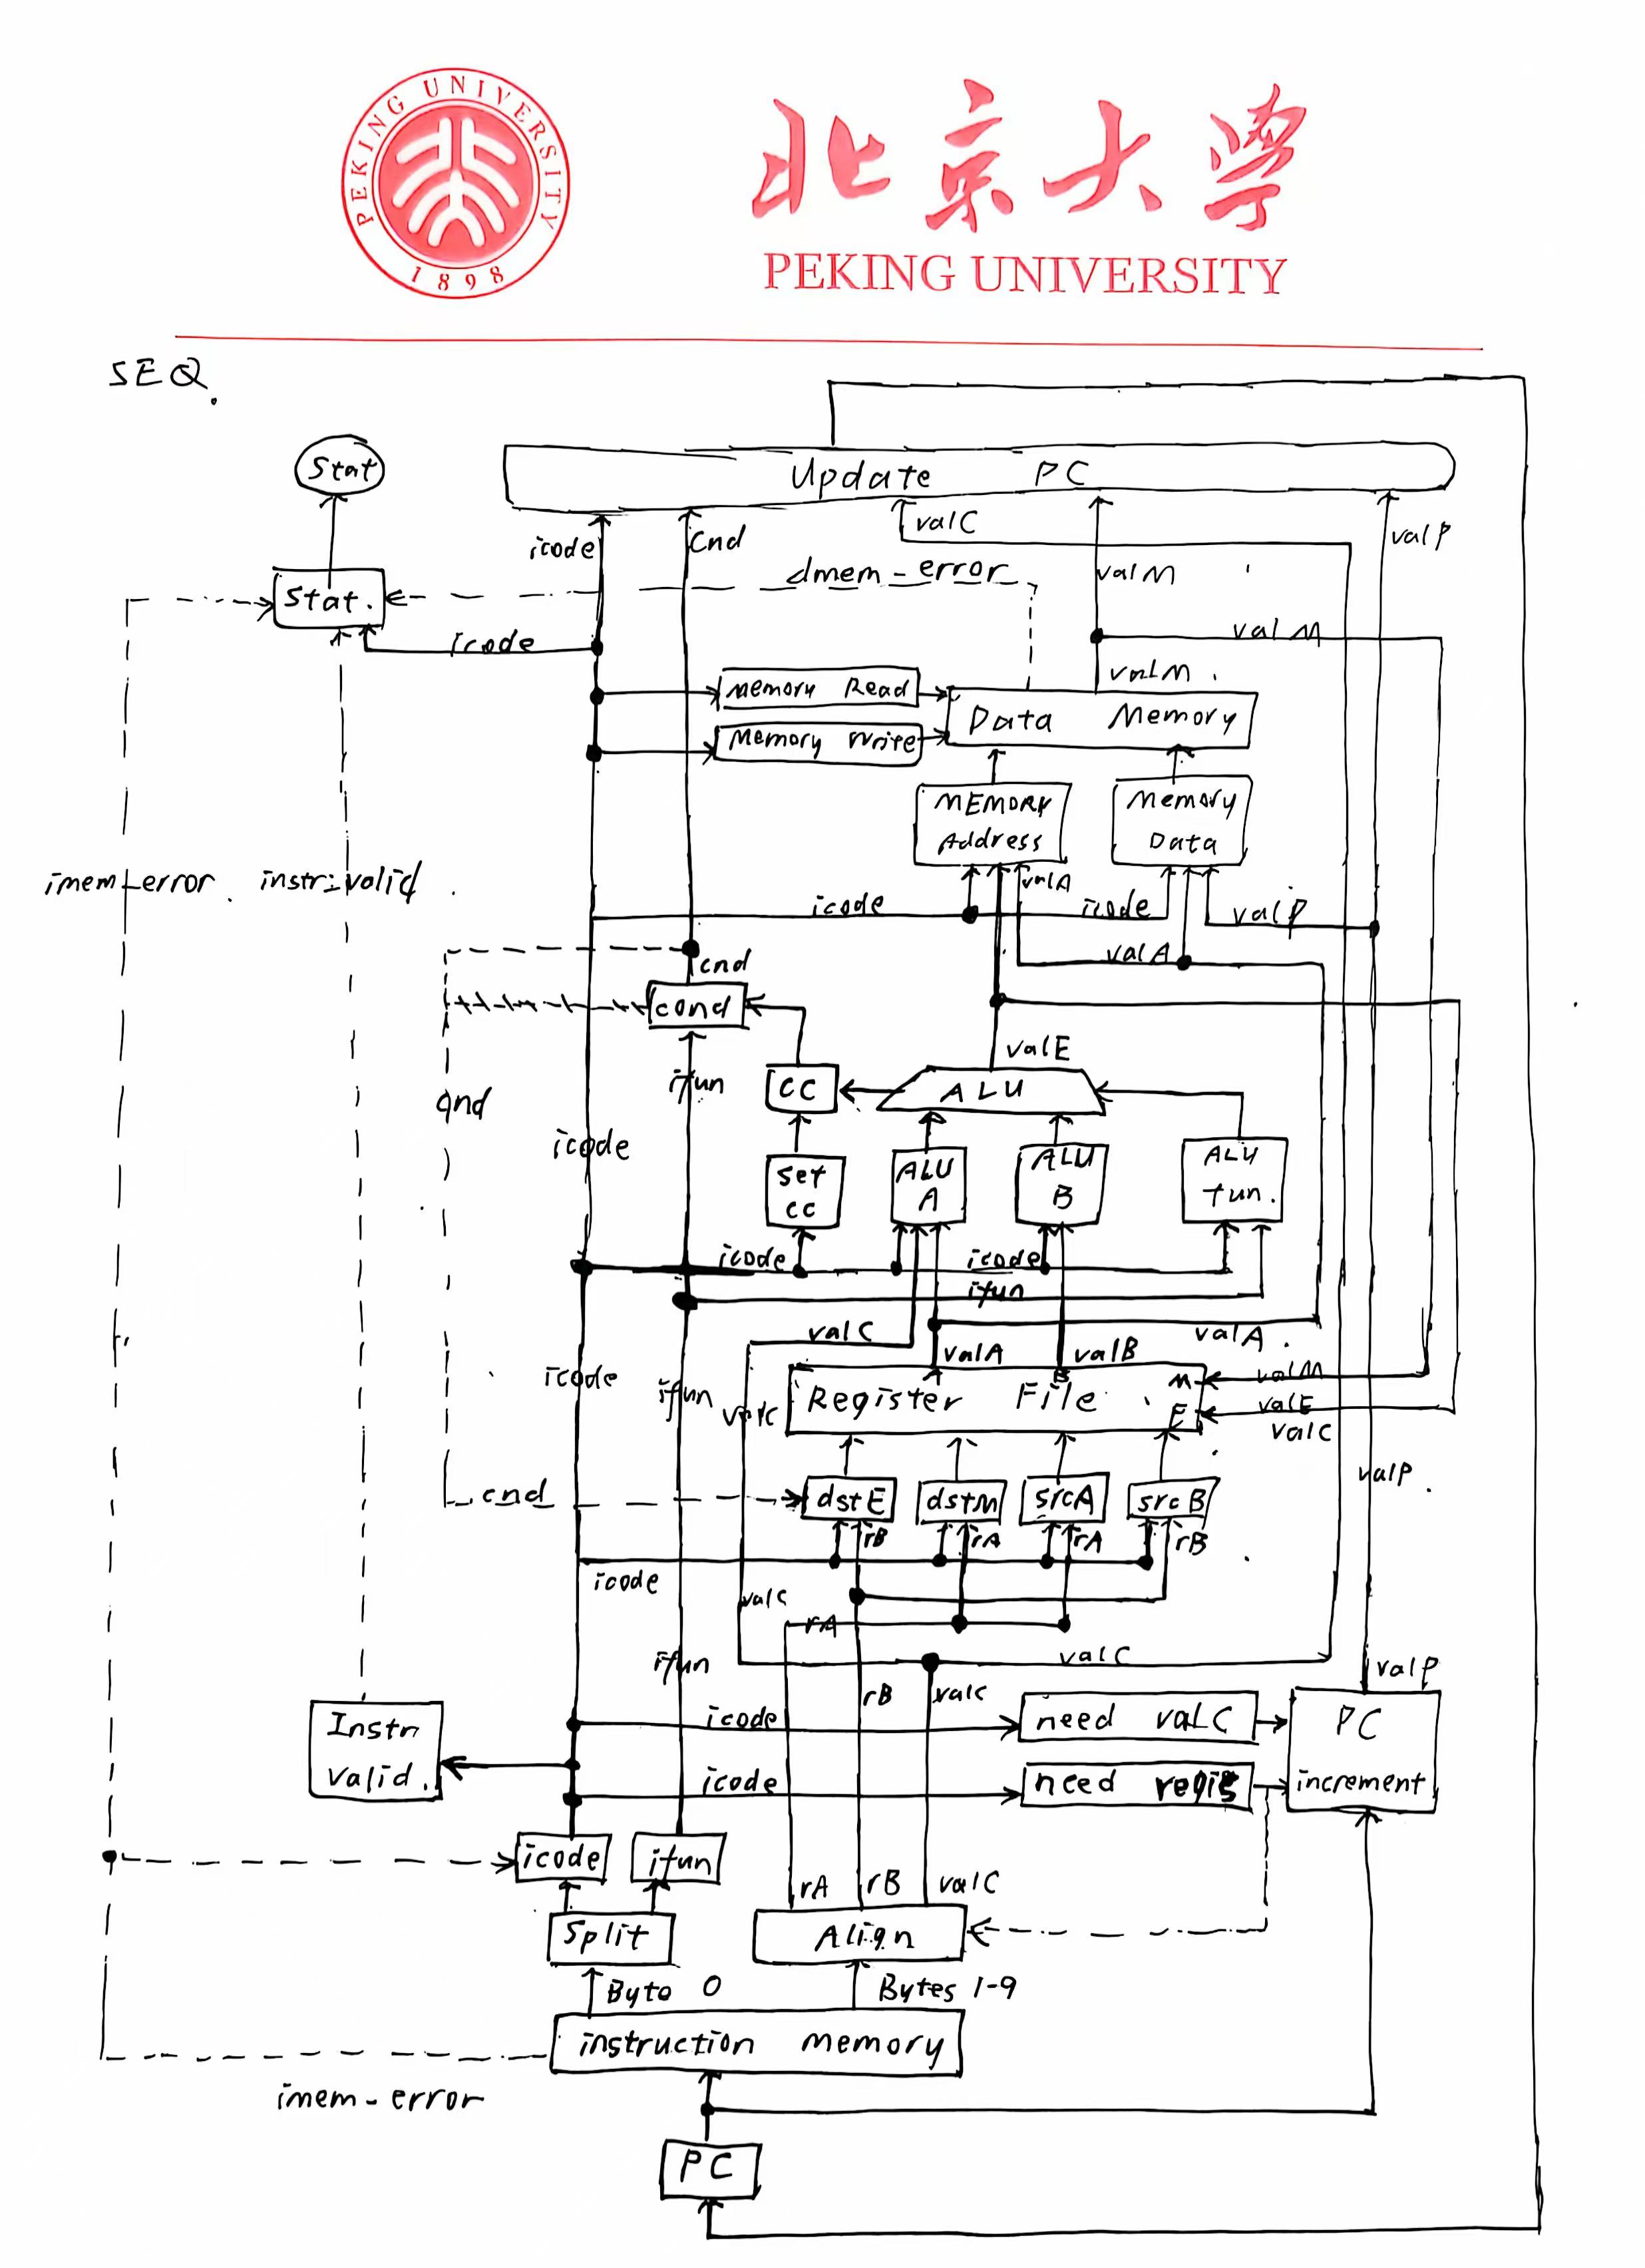 PEKING UNIVERSITY
1898
北京大学
PEKING UNIVERSITY
SEQ.
Stat
Update PC
icode
Cnd
valC
valP
dmem-error
valM
Stat.
icode
valM
valM.
Memory Read
Data Memory
Memory Write
MEMORY Address
Memory Data
imem-error.
instr-valid
valA
icode
icode
valP
valA
cnd
cond
valE
ifun
CC
ALU
cnd
icode
Set CC
ALU A
ALU B
ALU fun.
icode
icode
ifun
valC
valA.
valA
valB
icode
ifun
valC
Register File
A
B
M
E
valM
valE
valC
valP.
cnd
dstE
dstM
srcA
srcB
rB
rA
rA
rB
icode
valC
rA
ifun
valC
valP
rB
valC
Instr Valid.
icode
need valC
PC increment
icode
need regis
icode
ifun
rA
rB
valC
Split
Align
Byte 0
Bytes 1-9
instruction memory
imem-error
PC